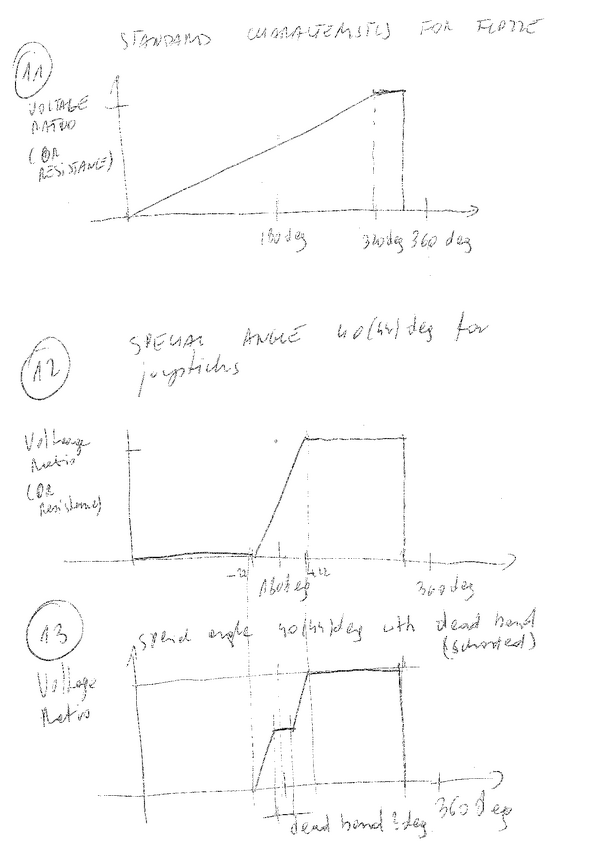 STANDARD CHARACTERISTICS FOR
11
VOLTAGE
RATIO
(OR
RESISTANCE)
180 deg 320 deg 360 deg
SPECIAL ANGLE 40(44) deg for
joysticks
12
Voltage
Ratio
(OR
Resistance)
-22 180 deg +22 360 deg
13
Special angle 40(44) deg with dead band
(shorted)
Voltage
Ratio
dead band ? deg 360 deg